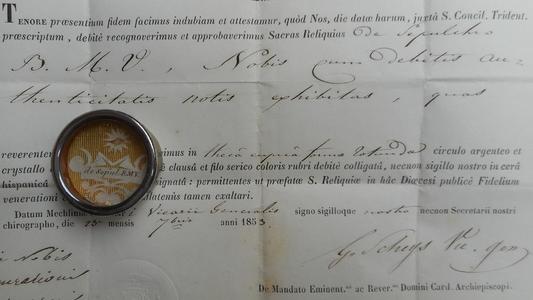 TENORE præsentium fidem facimus indubiam et attestamur, quòd Nos, die datæ harum, juxtà S. Concil. Trident.
præscriptum, debitè recognoverimus et approbaverimus Sacras Reliquias de Sepulchro
B. M. V., Nobis cum debitis au-
thenticitatis notis exhibitas, quas
reverenter imus in thecâ cupreâ formæ rotundæ circulo argenteo et
crystallo clausâ et filo serico coloris rubri debitè colligatâ, necnon sigillo nostro in cerâ
hispanicâ signatâ: permittentes ut præfatæ S. Reliquiæ in hâc Diœcesi publicè Fidelium
venerationi latenùs tamen exaltari.
de Sepul. B.M.V.
Datum Mechliniæ Vicarii Generalis signo sigilloque nostro necnon Secretarii nostri
chirographo, die 15 mensis 7bris anni 1853.
Nobis
G. Scheys Vic. gen
De Mandato Eminent. ac Rever. Domini Card. Archiepiscopi.